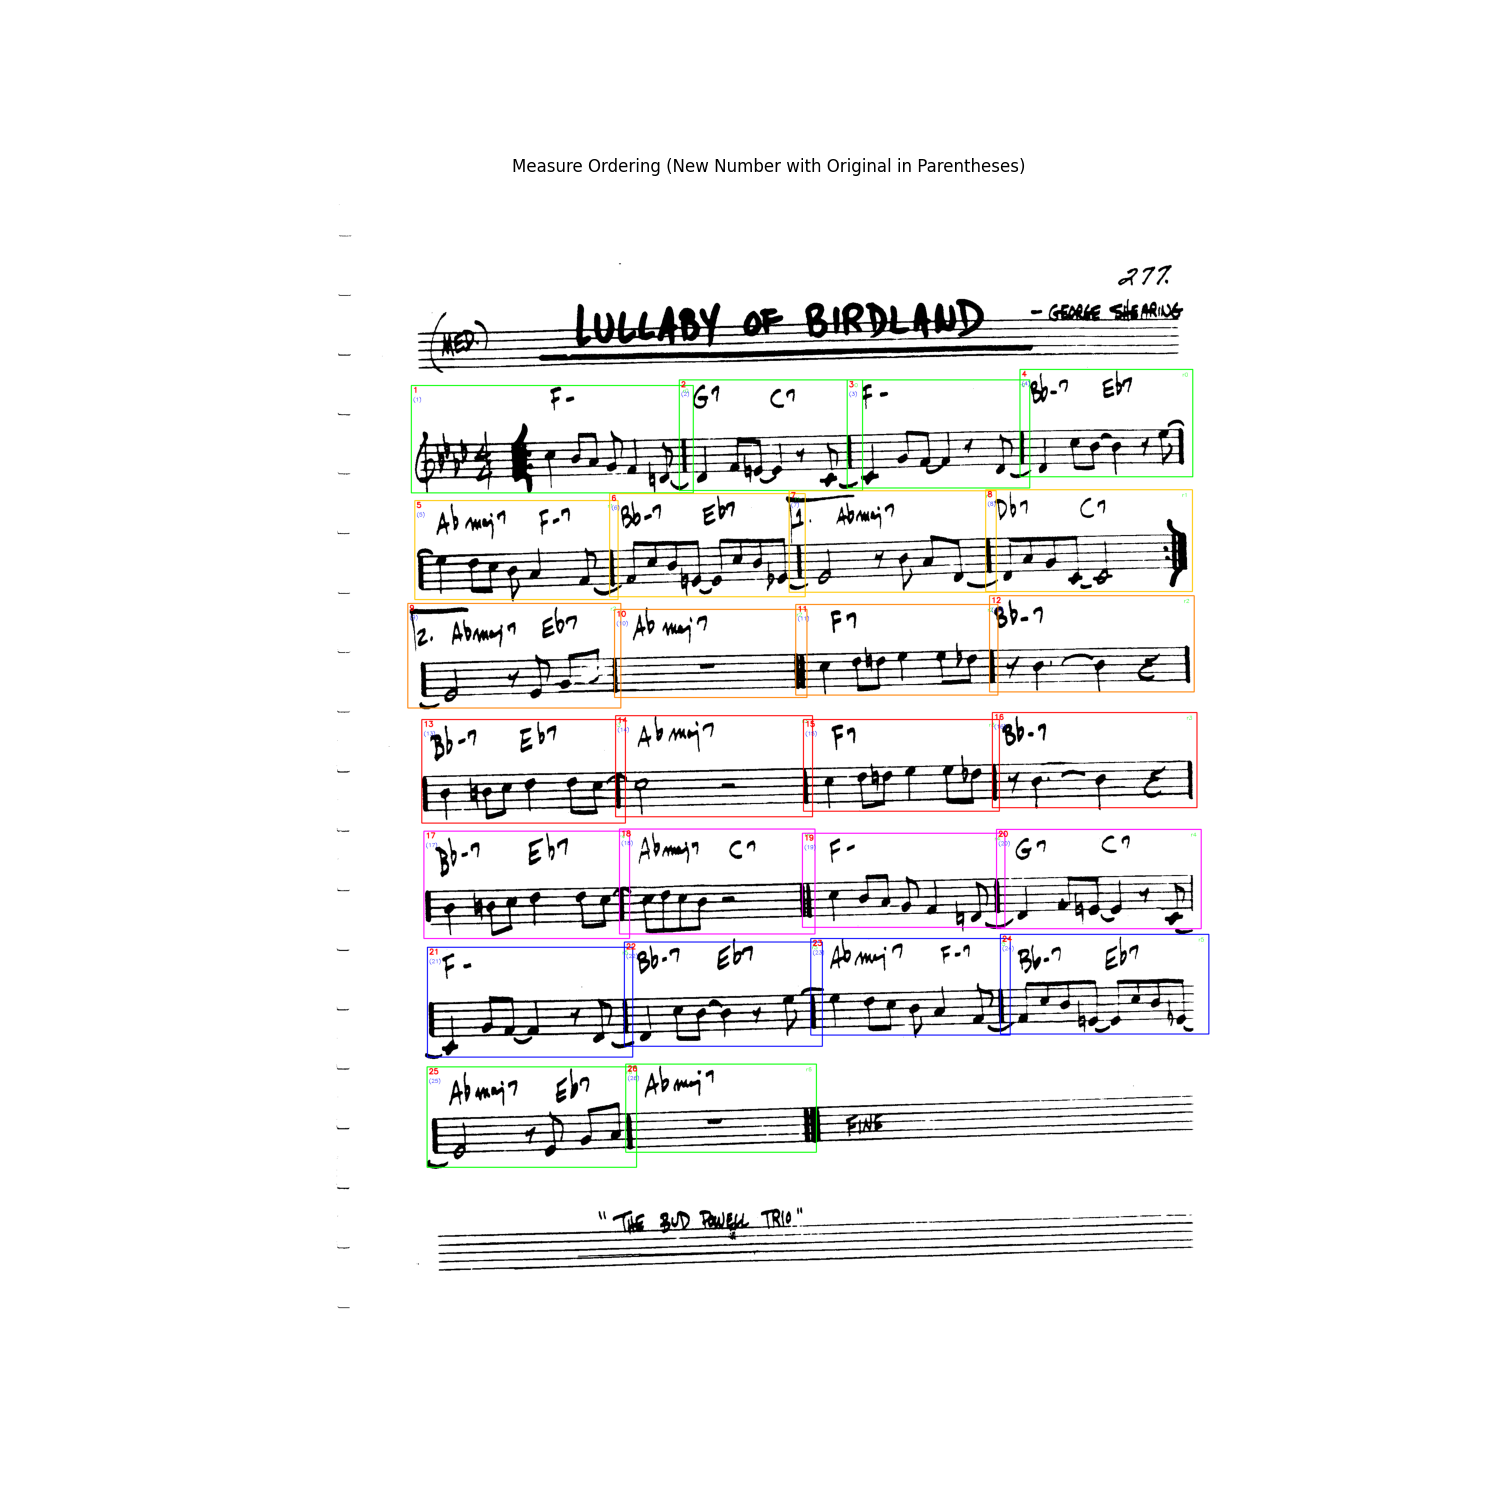 Measure Ordering (New Number with Original in Parentheses)
277.
(MED.) LULLABY OF BIRDLAND - GEORGE SHEARING
1 (1) F- 2 (2) G7 C7 3 (3) F- 4 (4) Bb-7 Eb7
5 (5) Ab maj7 F-7 6 (6) Bb-7 Eb7 7 1. Abmaj7 8 (8) Db7 C7
9 2. Abmaj7 Eb7 10 (10) Ab maj7 11 (11) F7 12 Bb-7
13 (13) Bb-7 Eb7 14 (14) Ab maj7 15 (15) F7 16 (16) Bb-7
17 (17) Bb-7 Eb7 18 (18) Abmaj7 C7 19 (19) F- 20 (20) G7 C7
21 (21) F- 22 (22) Bb-7 Eb7 23 (23) Ab maj7 F-7 24 (24) Bb-7 Eb7
25 (25) Ab maj7 Eb7 26 (26) Ab maj7 FINE
"THE BUD POWELL TRIO"